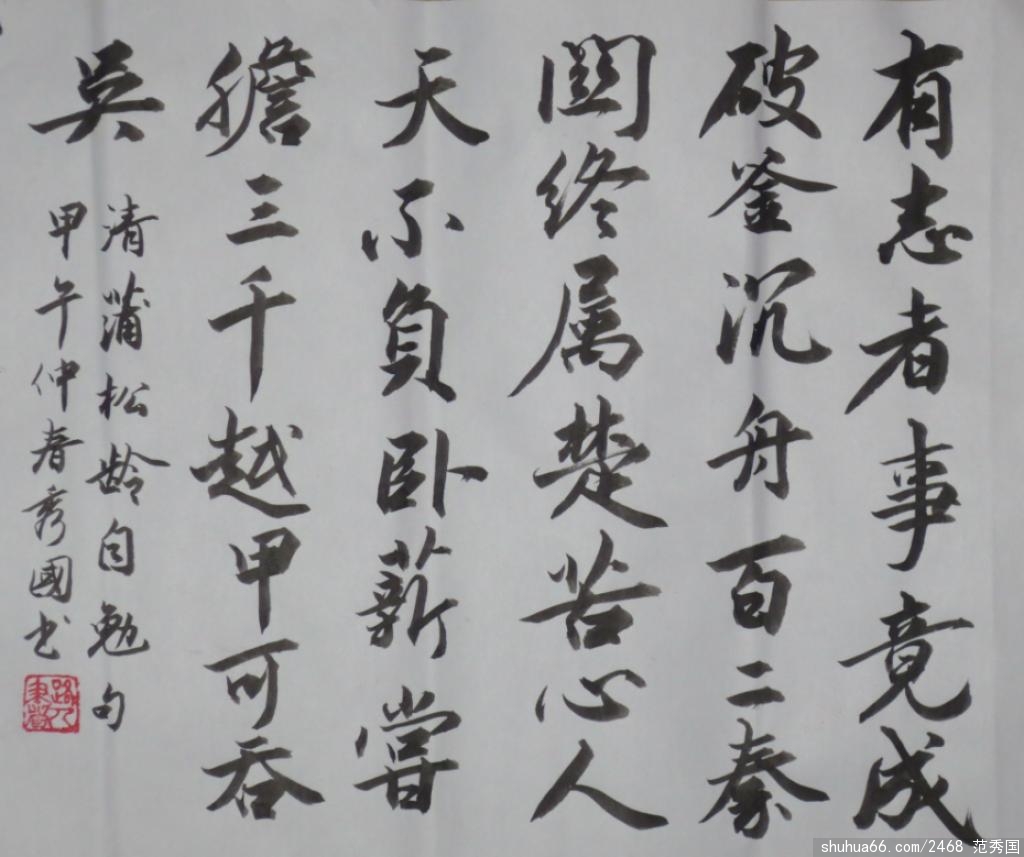 有志者事竟成
破釜沉舟百二秦
關终属楚苦心人
天不負卧薪嘗
膽三千越甲可吞
吴
清蒲松龄自勉句
甲午仲春秀國书
shuhua66.com/2468 范秀国